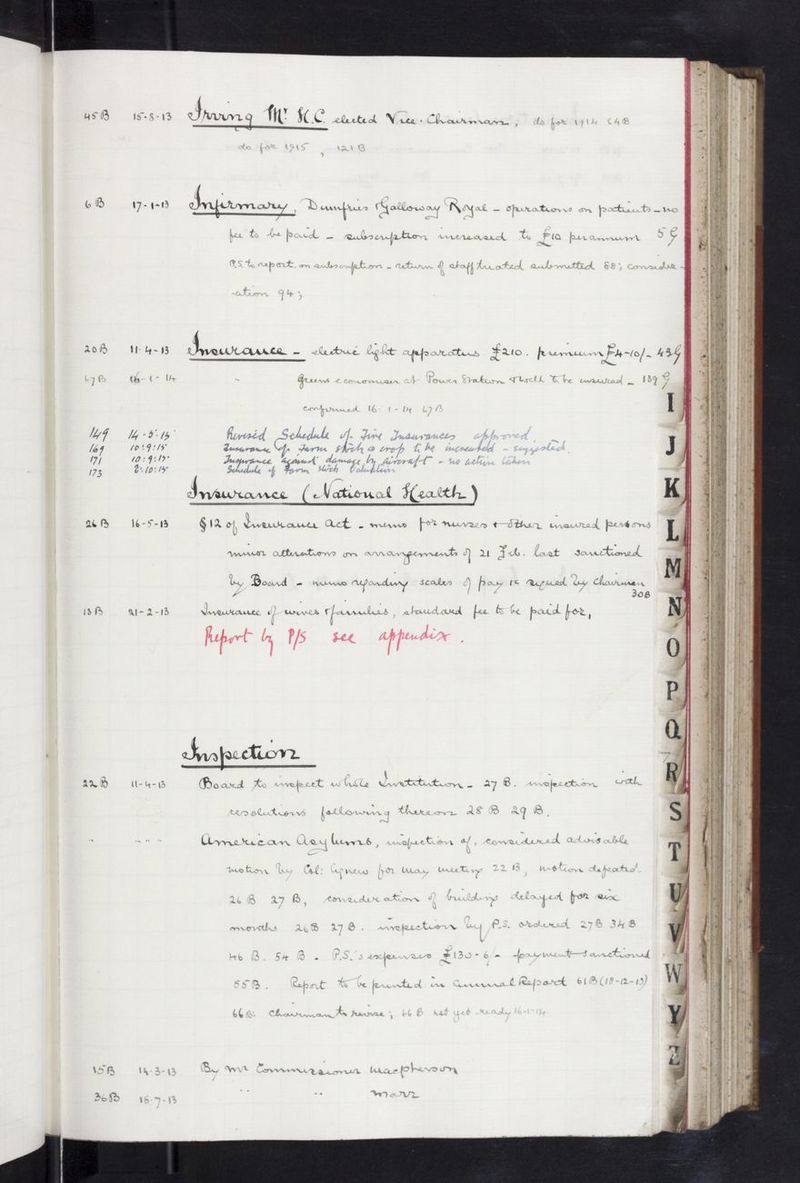 45B 15-8-13 Irving Mr. H.C. elected Vice-Chairman, do for 1914 64B
do for 1915, 121B
6B 17-1-13 Infirmary, Dumfries & Galloway Royal - operations on patients - no
fee to be paid - subscription increased to £10 per annum 5G
P.S. to report on subscription - return of staff treated submitted 88; consider-
ation 94;
20B 11-4-13 Insurance - electric light apparatus £210. premium £4-10/- 43G
67B 16-1-14 " Greens economiser at Power Station to be insured - 139G
confirmed 16-1-14 67B
149 14-5-15 Revised Schedule of Fire Insurances approved.
169 10:9:15 Insurance of Farm stock & crop to be increased - suggested.
171 10:9:15 Insurance against damage by aircraft - no action taken
173 8:10:15 Schedule of Farm Stock Valuation
Insurance (National Health)
26B 16-5-13 §12 of Insurance Act - memo for nurses & other insured persons
minor alterations on arrangements of 21 Feb. last sanctioned
by Board - memo regarding scales of pay to signed by Chairman
30B
13B 21-2-13 Insurance of wives & families, standard fee to be paid for,
Report by P/S see appendix.
Inspection
22B 11-4-13 Board to inspect whole Institution - 27B. inspection with
resolutions following thereon 28B 29B.
" " " " American Asylums, inspection of, considered advisable
motion by Col: Agnew for May meeting 22B, motion defeated.
26B 27B, consideration of buildings delayed for six
months 26B 27B. inspection by P.S. ordered 27B 34B
46B. 54B. P.S.'s expenses £130-6/- payment sanctioned
55B. Report to be printed in Annual Report 61B (18-12-13)
66B. Chairman to revise; 66B not yet ready 16-1-14
15B 14-3-13 By Mr Commissioner Macpherson
36B 18-7-13 " " Marr
I
J
K
L
M
N
O
P
Q
R
S
T
U
V
W
Y
Z